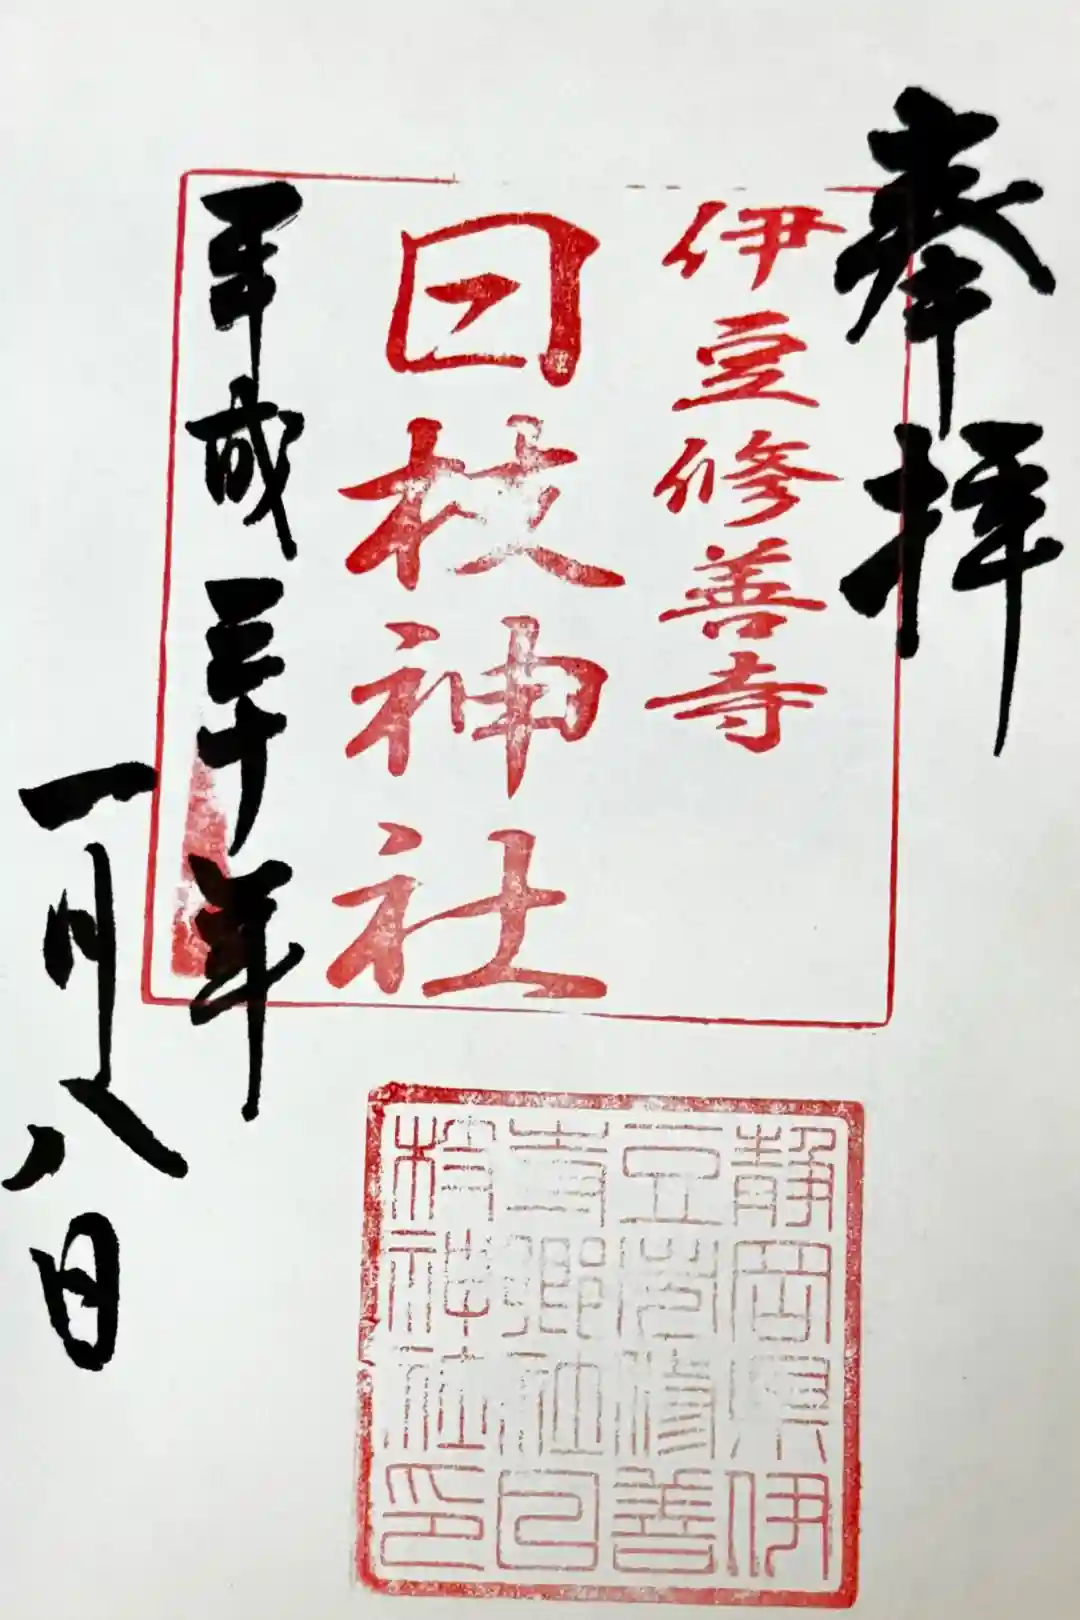 奉拝
伊豆修善寺
日枝神社
平成三十年
一月八日
静岡県伊
豆 修善
寺郷社日
枝神社印